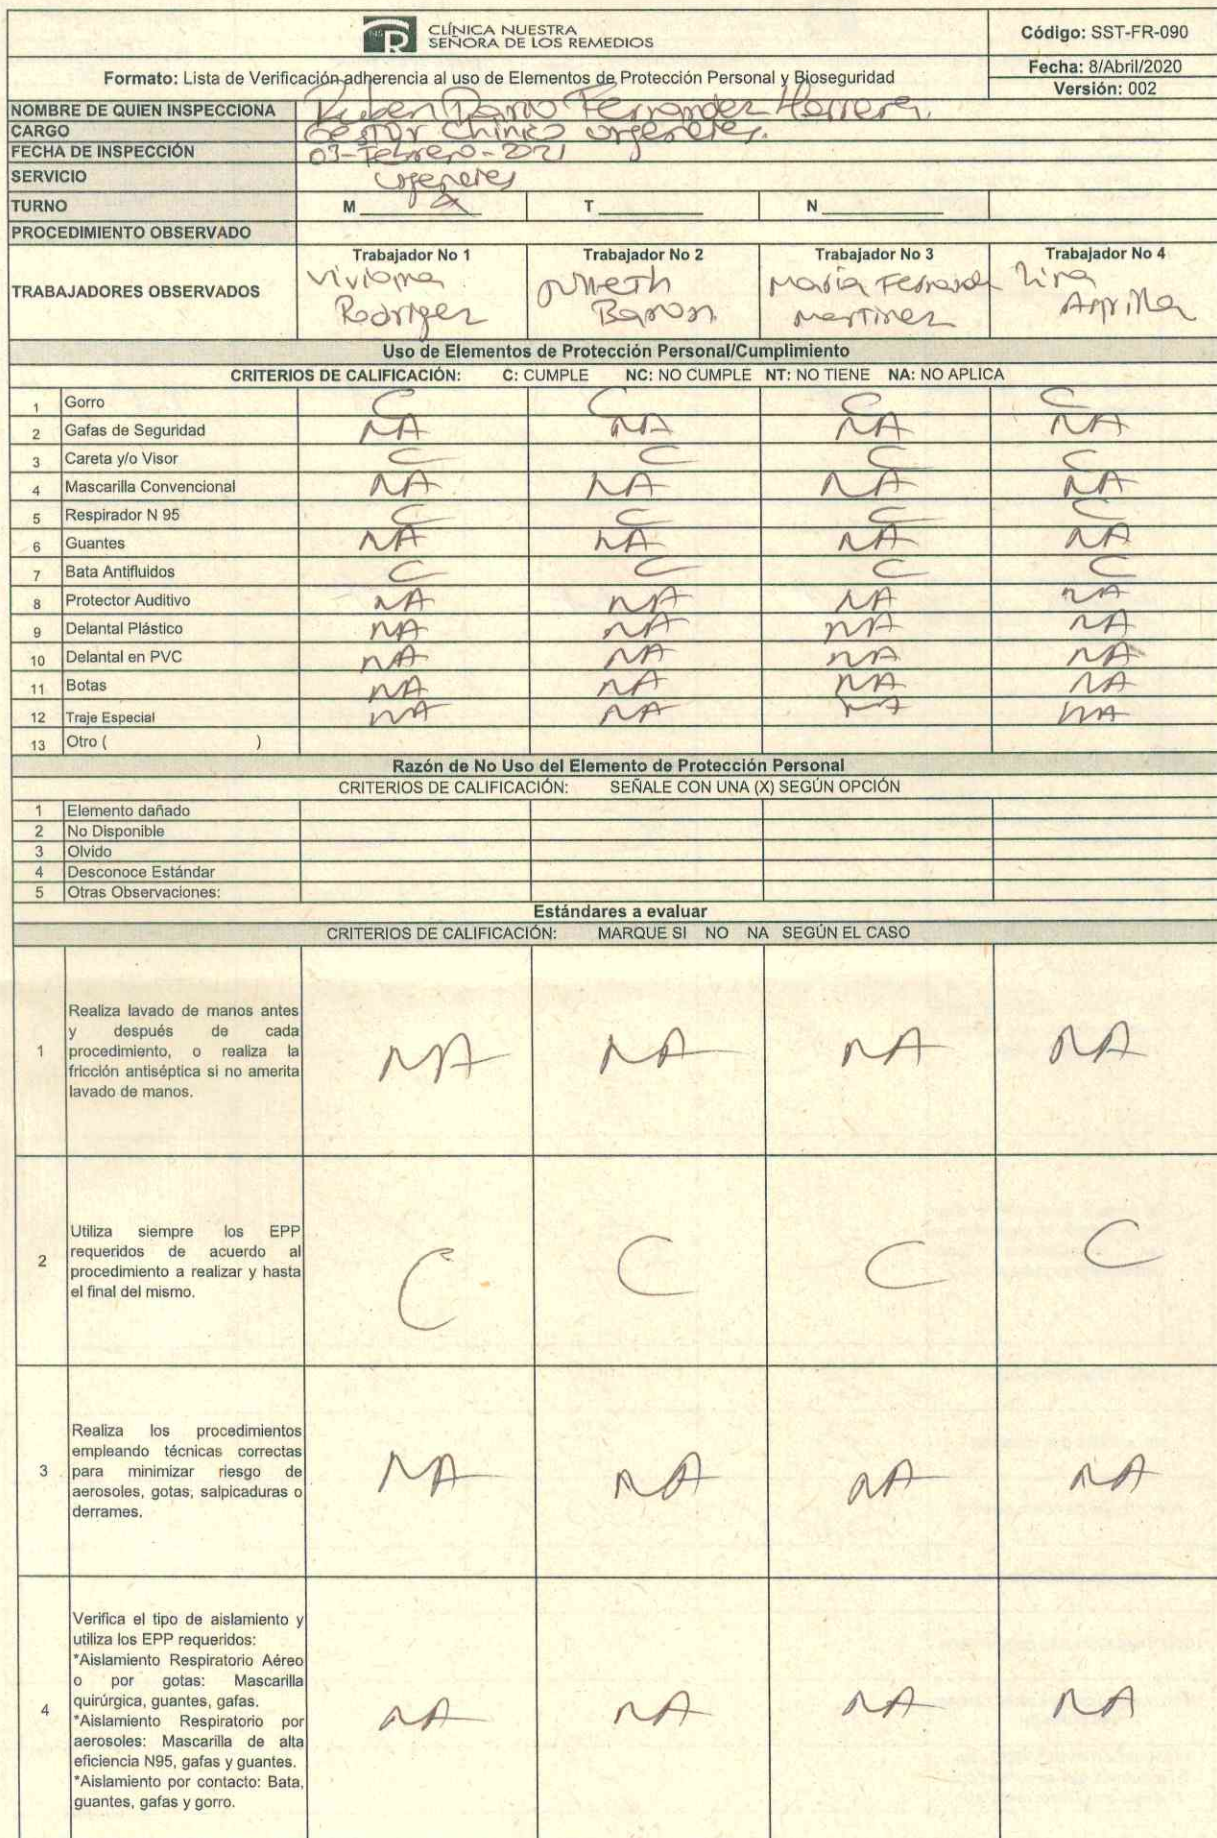 CLÍNICA NUESTRA
SEÑORA DE LOS REMEDIOS
Código: SST-FR-090
Formato: Lista de Verificación adherencia al uso de Elementos de Protección Personal y Bioseguridad
Fecha: 8/Abril/2020
Versión: 002
NOMBRE DE QUIEN INSPECCIONA Ruben Dario Fernandez Herrera.
CARGO Gestor Clinico urgencias.
FECHA DE INSPECCIÓN 03-Febrero-2021
SERVICIO urgencias
TURNO M X T N
PROCEDIMIENTO OBSERVADO
TRABAJADORES OBSERVADOS
Trabajador No 1 Trabajador No 2 Trabajador No 3 Trabajador No 4
Viviana Maria Fernanda
Rodriguez Baron Martinez
Uso de Elementos de Protección Personal/Cumplimiento
CRITERIOS DE CALIFICACIÓN: C: CUMPLE NC: NO CUMPLE NT: NO TIENE NA: NO APLICA
1 Gorro C C C C
2 Gafas de Seguridad NA NA NA NA
3 Careta y/o Visor C C C C
4 Mascarilla Convencional NA NA NA NA
5 Respirador N 95 C C C C
6 Guantes NA NA NA NA
7 Bata Antifluidos C C C C
8 Protector Auditivo NA NA NA NA
9 Delantal Plástico NA NA NA NA
10 Delantal en PVC NA NA NA NA
11 Botas NA NA NA NA
12 Traje Especial NA NA NA NA
13 Otro ( )
Razón de No Uso del Elemento de Protección Personal
CRITERIOS DE CALIFICACIÓN: SEÑALE CON UNA (X) SEGÚN OPCIÓN
1 Elemento dañado
2 No Disponible
3 Olvido
4 Desconoce Estándar
5 Otras Observaciones:
Estándares a evaluar
CRITERIOS DE CALIFICACIÓN: MARQUE SI NO NA SEGÚN EL CASO
1
Realiza lavado de manos antes
y después de cada
procedimiento, o realiza la
fricción antiséptica si no amerita
lavado de manos.
NA NA NA NA
2
Utiliza siempre los EPP
requeridos de acuerdo al
procedimiento a realizar y hasta
el final del mismo.
C C C C
3
Realiza los procedimientos
empleando técnicas correctas
para minimizar riesgo de
aerosoles, gotas, salpicaduras o
derrames.
NA NA NA NA
4
Verifica el tipo de aislamiento y
utiliza los EPP requeridos:
*Aislamiento Respiratorio Aéreo
o por gotas: Mascarilla
quirúrgica, guantes, gafas.
*Aislamiento Respiratorio por
aerosoles: Mascarilla de alta
eficiencia N95, gafas y guantes.
*Aislamiento por contacto: Bata,
guantes, gafas y gorro.
NA NA NA NA